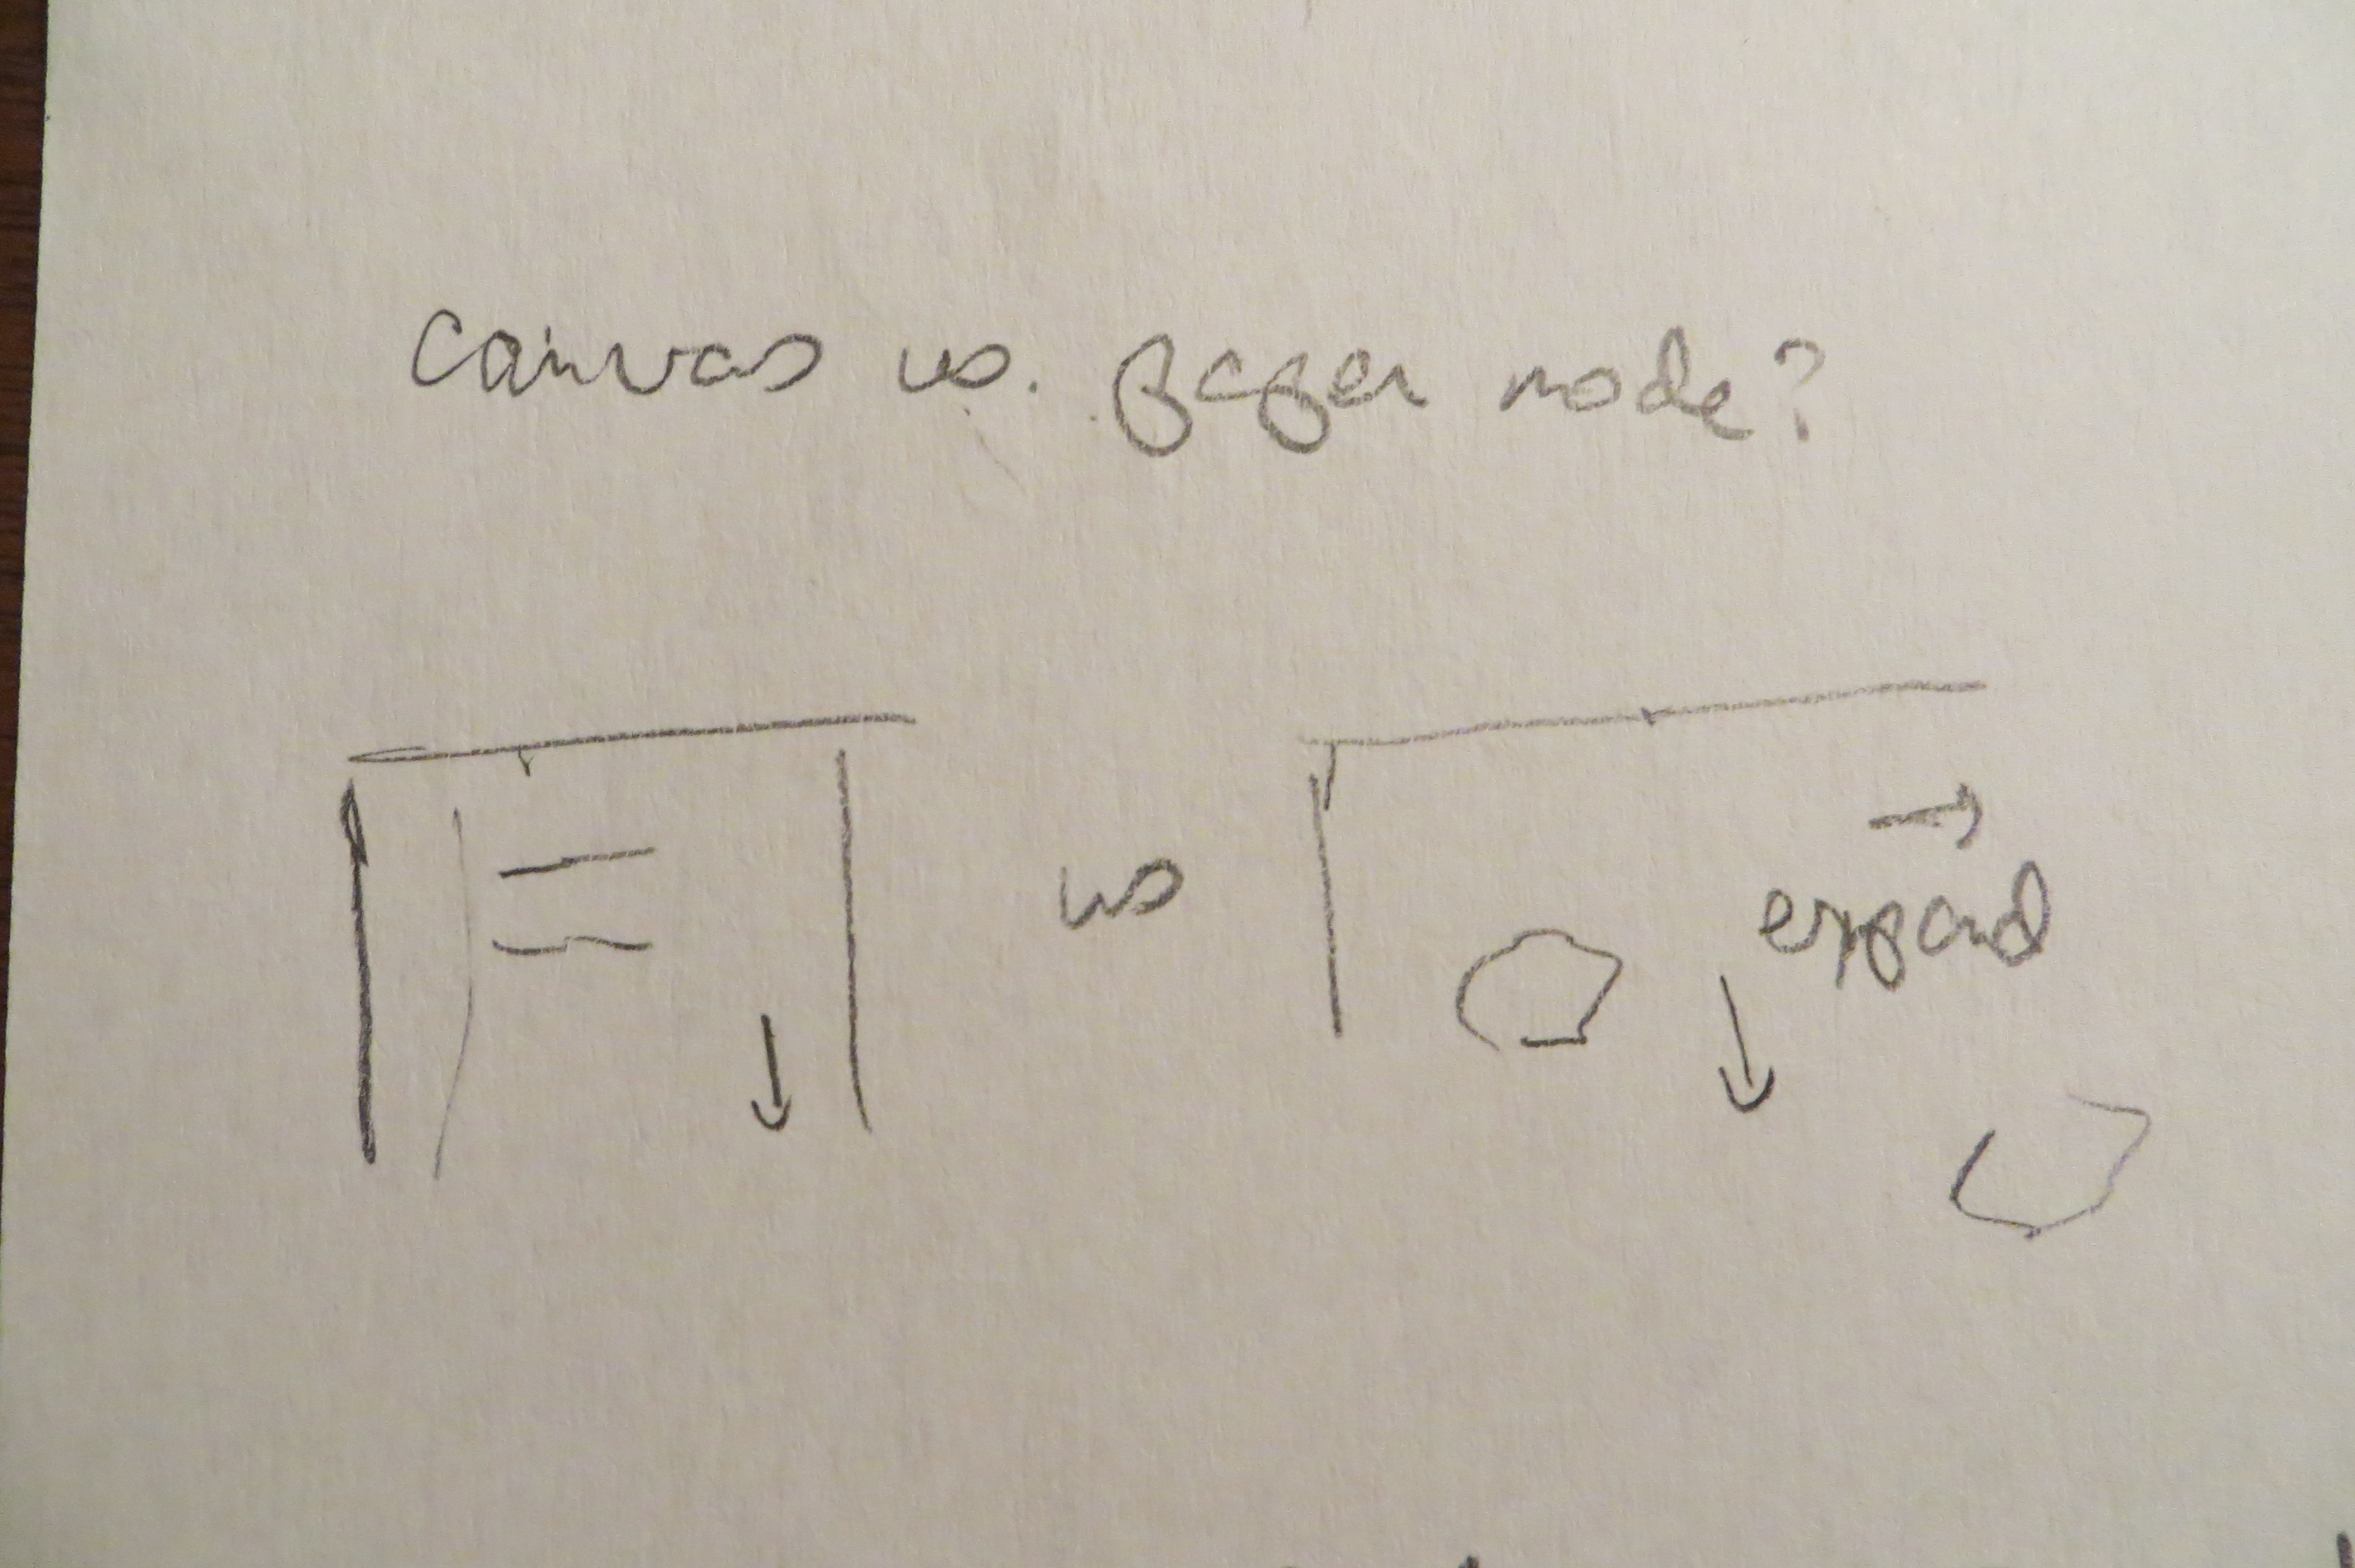 Canvas vs. Paper mode?
vs
expand